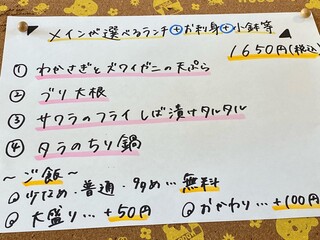 メインが選べるランチ+お刺身+小鉢等
1650円(税込)
① わかさぎとズワイガニの天ぷら
② ブリ大根
③ サワラのフライしば漬けタルタル
④ タラのちり鍋
～ご飯～
少なめ・普通・多め…無料
大盛り…+50円
おかわり…+100円